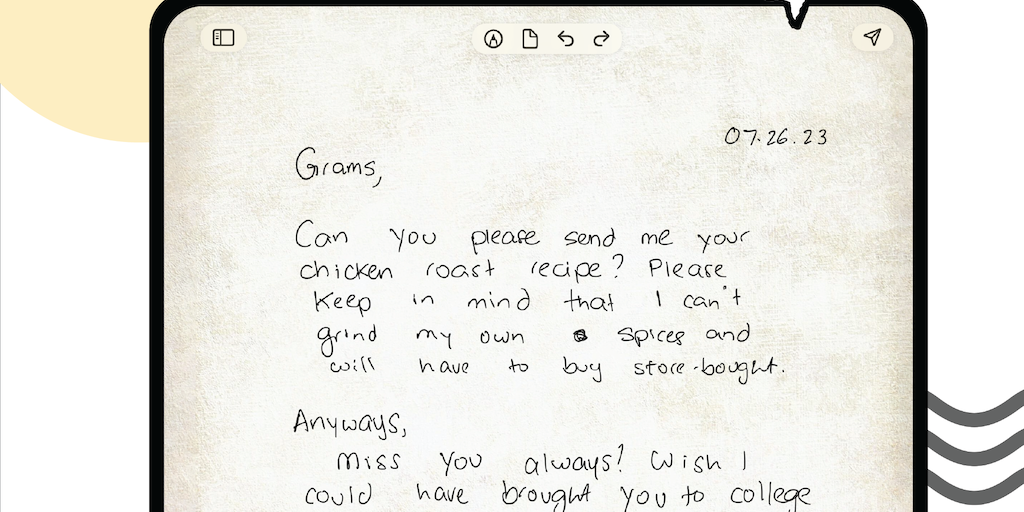 07.26.23
Grams,
Can you please send me your
chicken roast recipe? Please
keep in mind that I can't
grind my own spices and
will have to buy store-bought.
Anyways,
miss you always! Wish I
could have brought you to college